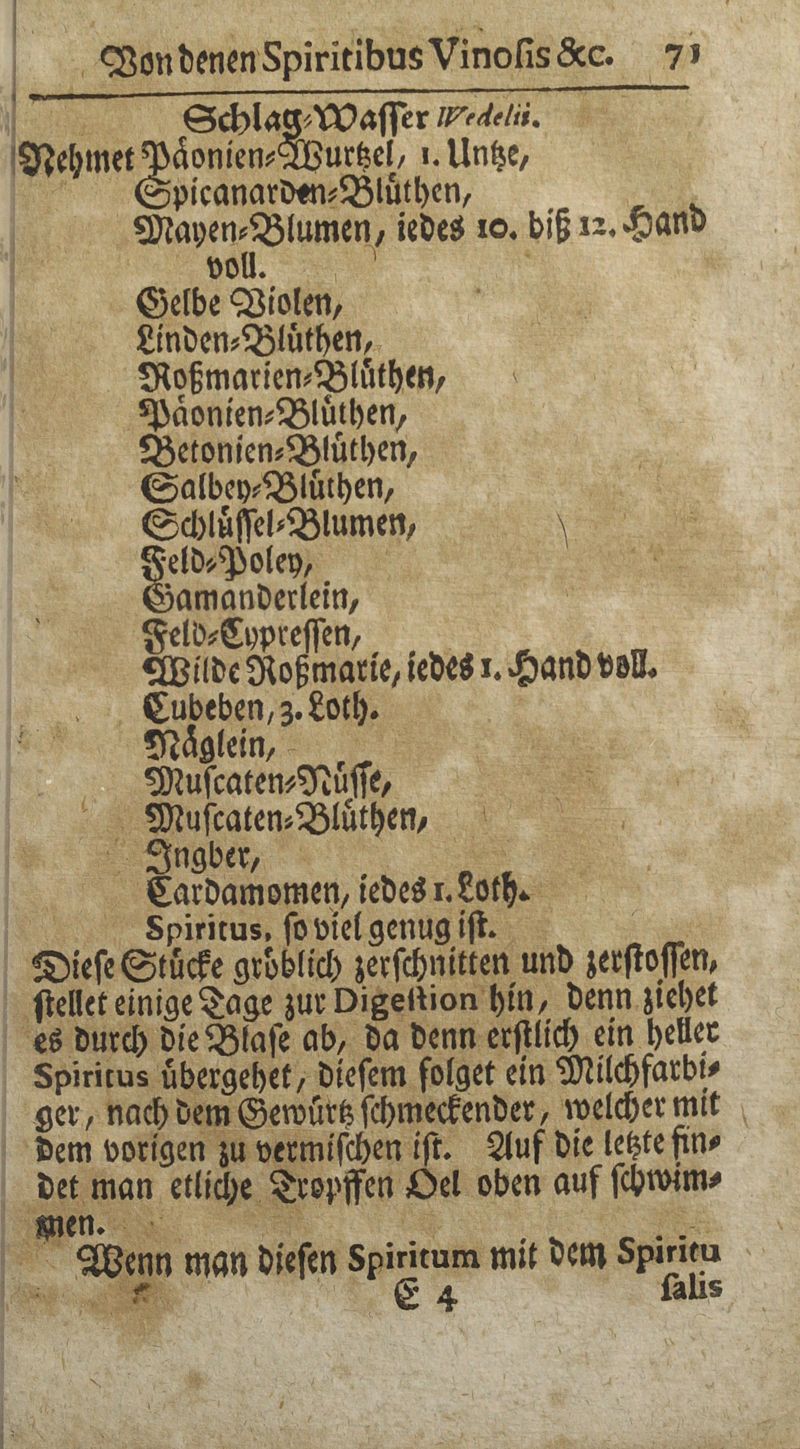 Von denen Spiritibus Vinosis &c. 71
Schlag-Wasser Wedelii.
Nehmet Päonien-Wurtzel, 1. Untze,
Spicanarden-Blüthen,
Mayen-Blumen, iedes 10. biß 12. Hand
voll.
Gelbe Violen,
Linden-Blüthen,
Roßmarien-Blüthen,
Päonien-Blüthen,
Betonien-Blüthen,
Salbey-Blüthen,
Schlüssel-Blumen,
Feld-Poley,
Gamanderlein,
Feld-Cypressen,
Wilde Roßmarie, iedes 1. Hand voll.
Cubeben, 3. Loth.
Näglein,
Muscaten-Nüsse,
Muscaten-Blüthen,
Ingber,
Cardamomen, iedes 1. Loth.
Spiritus, so viel genug ist.
Diese Stücke gröblich zerschnitten und zerstossen,
stellet einige Tage zur Digestion hin, denn ziehet
es durch die Blase ab, da denn erstlich ein heller
Spiritus übergehet, diesem folget ein Milchfarbi-
ger, nach dem Gewürtz schmeckender, welcher mit
dem vorigen zu vermischen ist. Auf die letzte fin-
det man etliche Tropffen Oel oben auf schwim-
men.
Wenn man diesen Spiritum mit dem Spiritu
E 4 salis